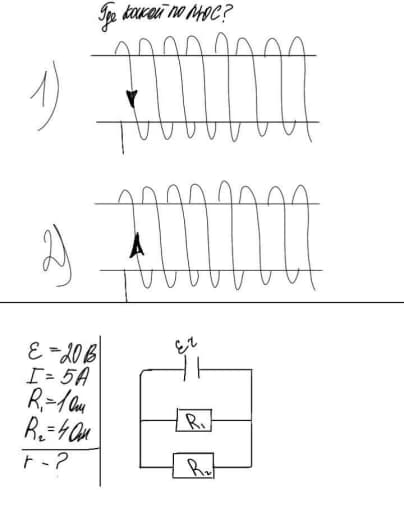 Где какой полюс?
1)
2)
ε = 20 В
I = 5 А
R₁ = 1 Ом
R₂ = 4 Ом
r - ?
ε r
R₁
R₂